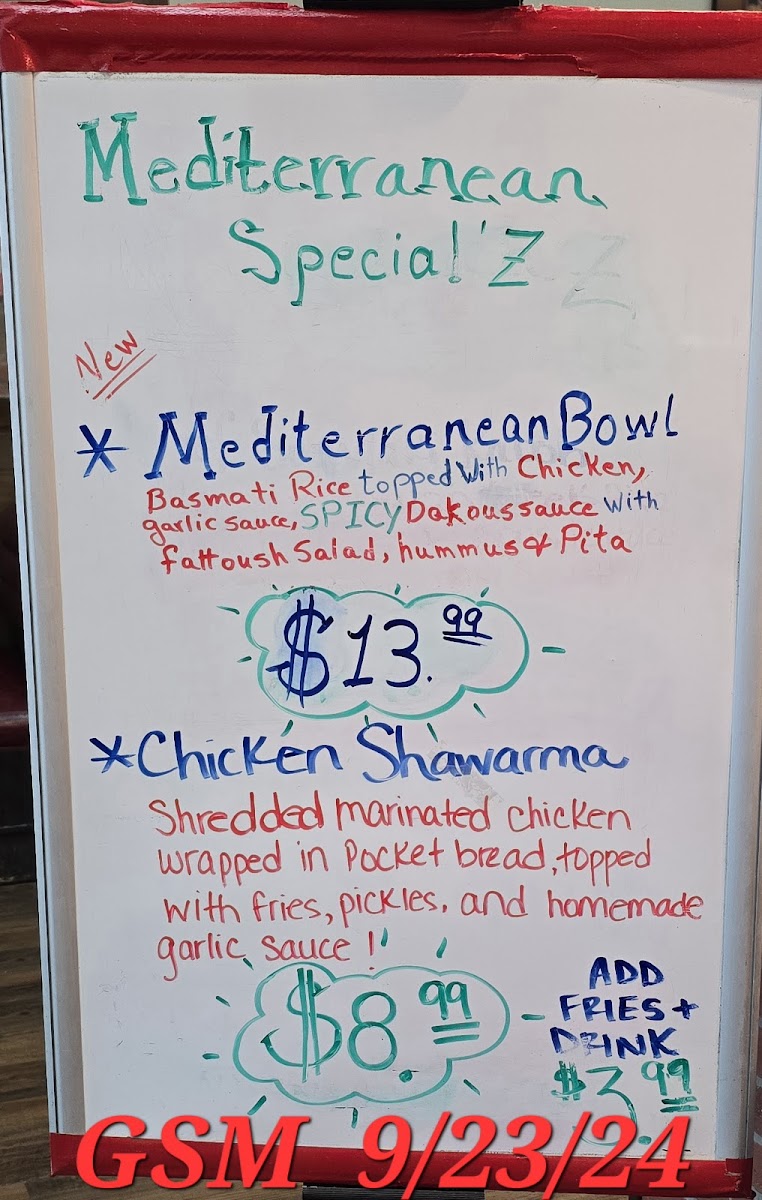 Mediterranean
Special'Z
New
* Mediterranean Bowl
Basmati Rice topped with Chicken,
garlic sauce, SPICY Dakous sauce with
fattoush Salad, hummus & Pita
$13.99
*Chicken Shawarma
Shredded marinated chicken
wrapped in Pocket bread, topped
with fries, pickles, and homemade
garlic sauce!
$8.99
ADD
FRIES +
DRINK
$3.99
GSM 9/23/24